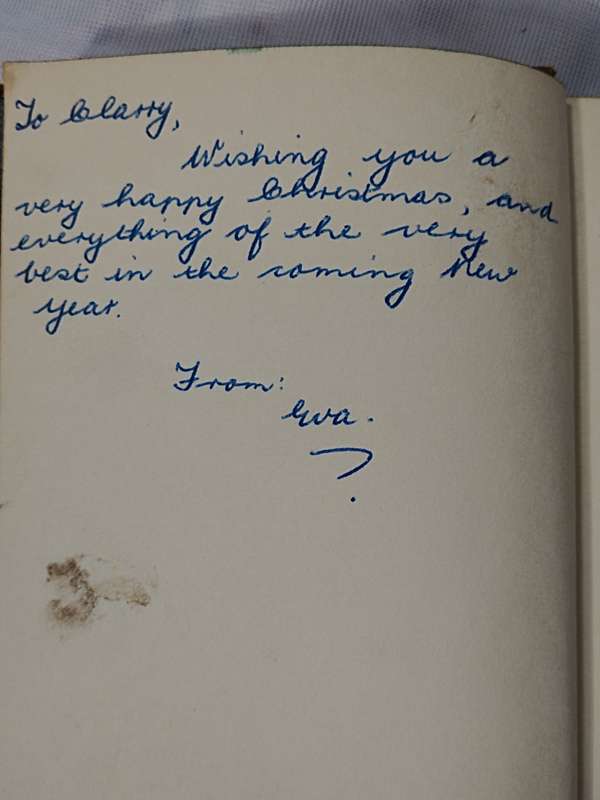 To Clarry,
Wishing you a
very happy Christmas, and
everything of the very
best in the coming New
year.
From:
Eva.
?